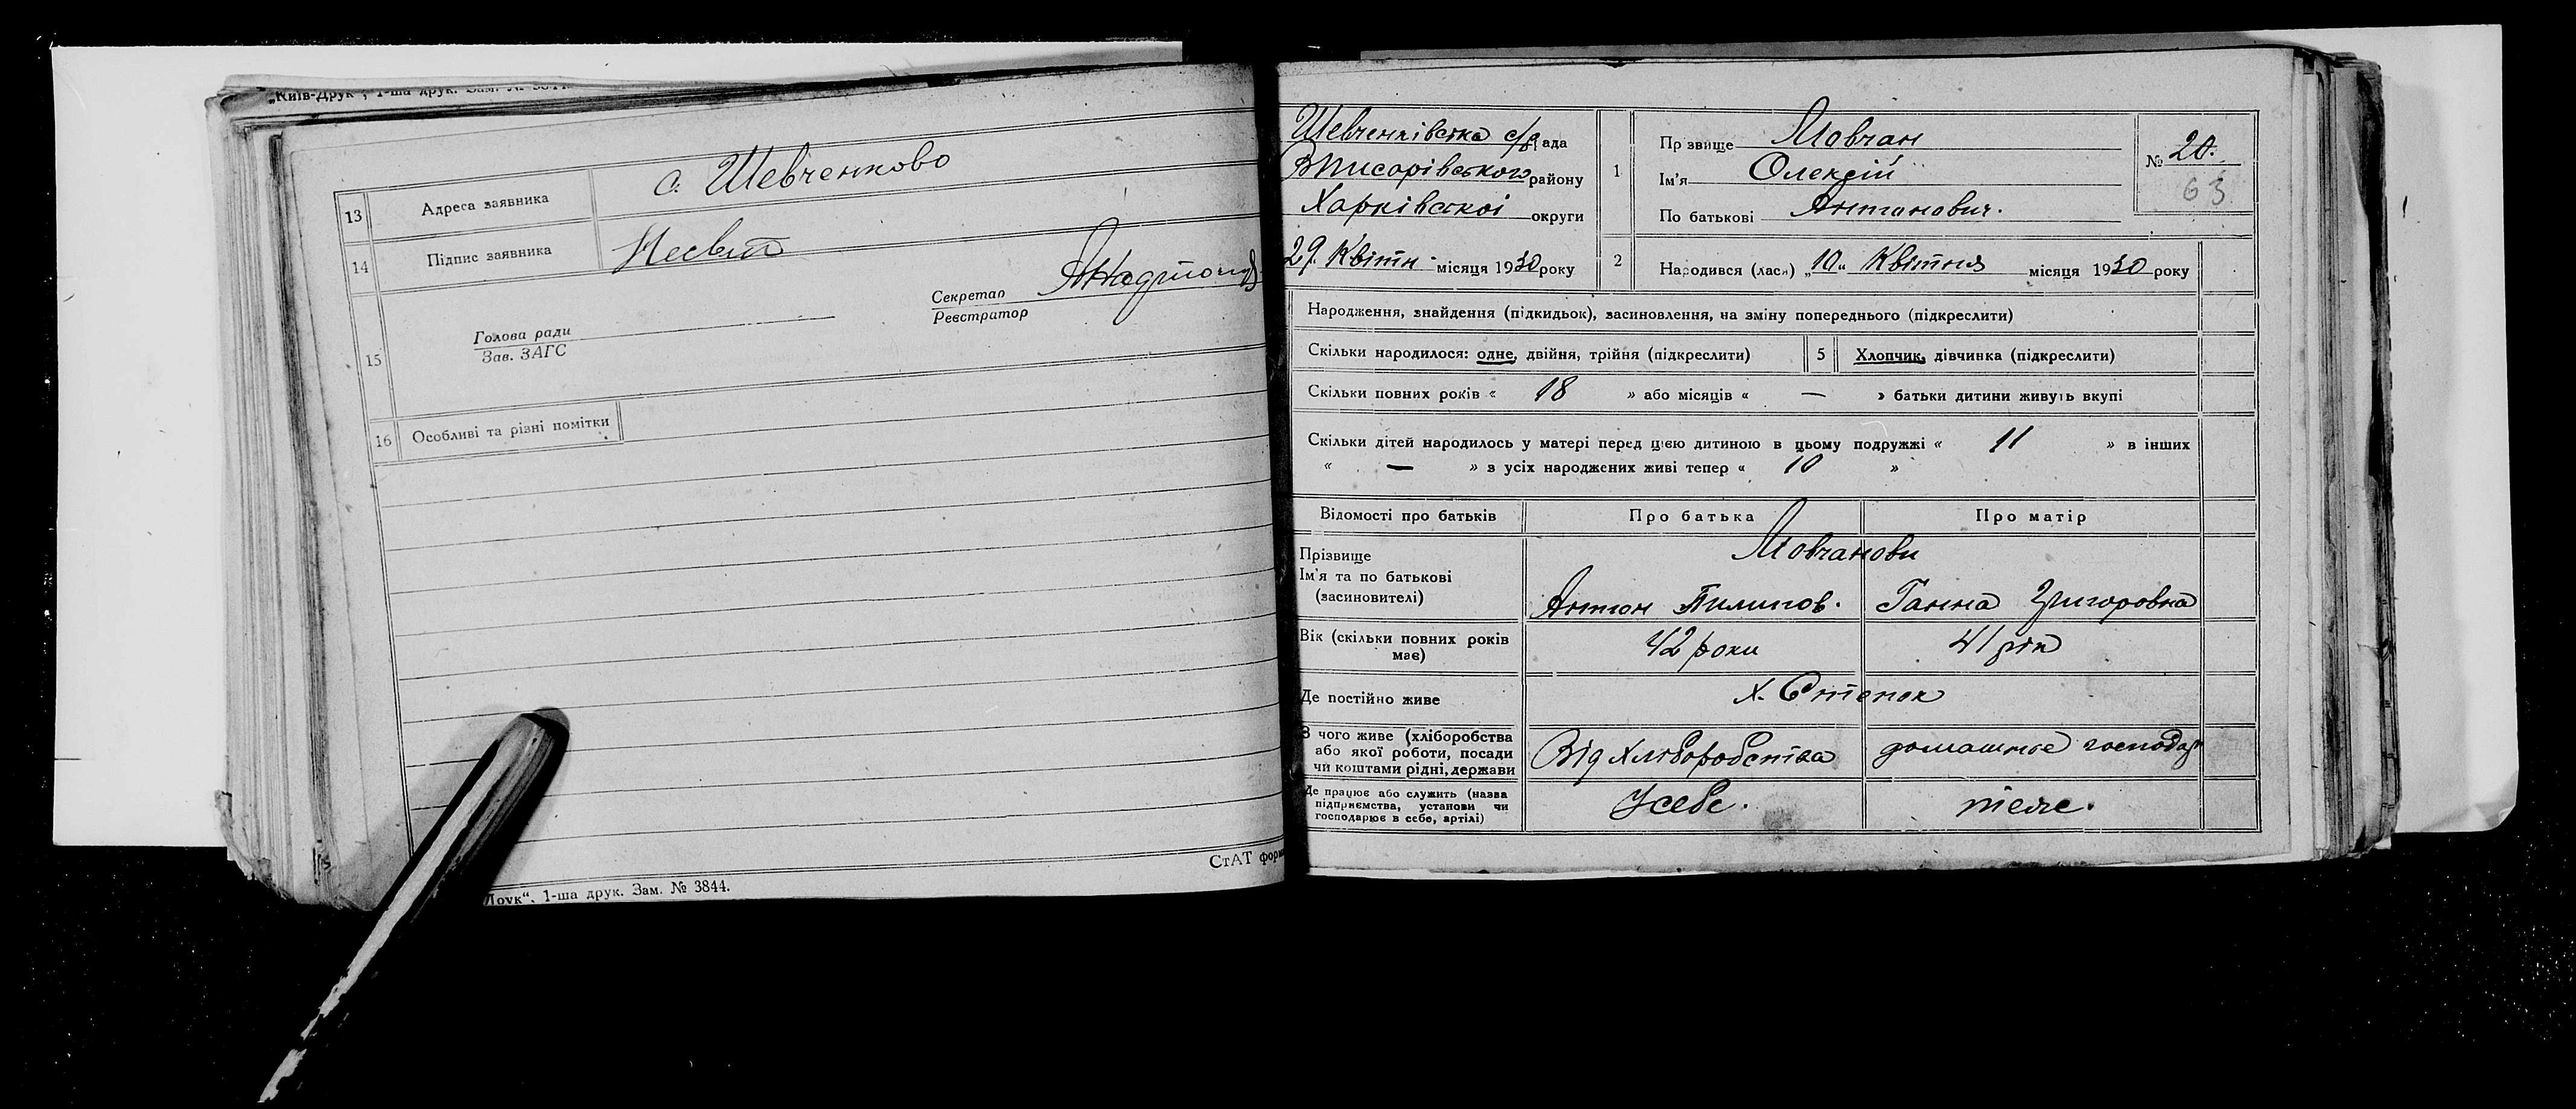 „Київ-Друк“, 1-ша друк. Зам. № 3844.
13 Адреса заявника с. Шевченково
14 Підпис заявника
15 Голова ради
Зав. ЗАГС
Секретар
Реєстратор
16 Особливі та різні помітки
СтАТ форм
Друк“, 1-ша друк. Зам. № 3844.
Шевченківська с/рада
ВПисарівського району
Харківської округи
29 Квітн. місяця 1930 року
1 Прізвище Мовчан
Ім'я Олексій
По батькові Антонович.
№ 20.
63
2 Народився (лася) „10“ Квітня місяця 1930 року
Народження, знайдення (підкидьок), засиновлення, на зміну попереднього (підкреслити)
Скільки народилося: одне, двійня, трійня (підкреслити) 5 Хлопчик, дівчинка (підкреслити)
Скільки повних років « 18 » або місяців « — » батьки дитини живуть вкупі
Скільки дітей народилось у матері перед цією дитиною в цьому подружжі « 11 » в інших
« — » з усіх народжених живі тепер « 10 »
Відомості про батьків Про батька Про матір
Прізвище Мовчанови
Ім'я та по батькові
(засиновителі) Антон Пилипов. Ганна Григоровна
Вік (скільки повних років
має) 42 роки 41 рік
Де постійно живе х. Степок
З чого живе (хліборобства
або якої роботи, посади
чи коштами рідні, держави Від хліборобства домашнє господар
Де працює або служить (назва
підприємства, установи чи
господарює в себе, артілі) У себе. теж.